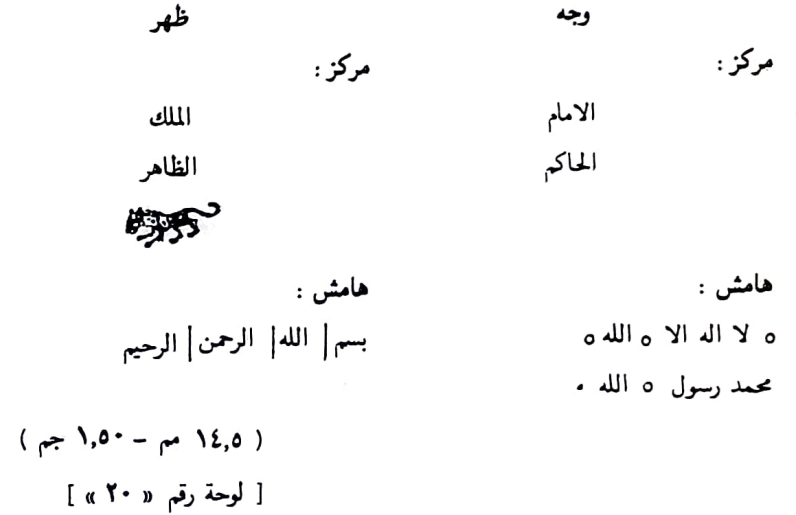 وجه
مركز :
الامام
الحاكم
هامش :
o لا اله الا o الله o
محمد رسول o الله •
ظهر
مركز :
الملك
الظاهر
هامش :
بسم | الله | الرحمن | الرحيم
( ١٤,٥ مم – ١,٥٠ جم )
[ لوحة رقم « ٢٠ » ]